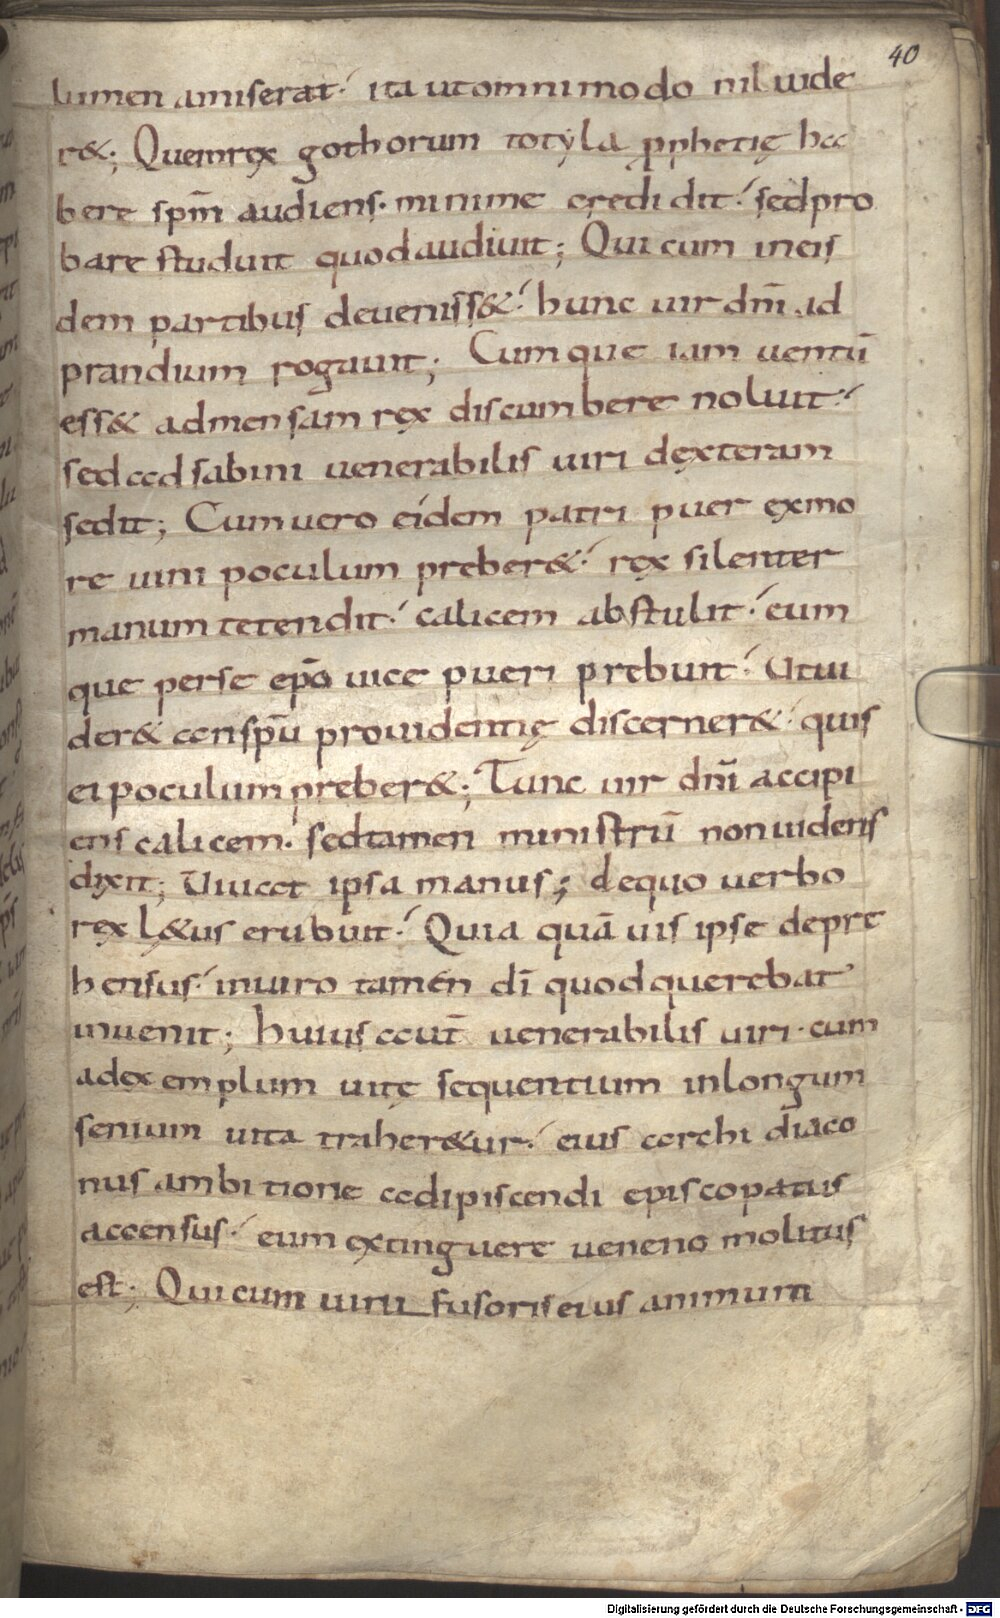 40
lumen amiserat· ita utomnimodo nil uide
r&; Quemrex gothorum totyla ꝓphetię ha
bere spm̄ audiens· minime credidit· sedpro
bare studuit quodaudiuit; Qui cum ineis
dem partibus deueniss&· hunc uir dnī ad
prandium rogauit; Cumque iam uentū
ess& admensam rex discumbere noluit·
sedad sabini uenerabilis uiri dexteram
sedit; Cumuero eidem patri puer exmo
re uini poculum preber&· rex silenter
manum tetendit· calicem abstulit· eum
que perse epō uice pueri prebuit· Utui
der& anspū prouidentię discerner& quis
ei poculum preber&; Tunc uir dnī accipi
ens calicem· sedtamen ministrū nonuidens
dixit; Uiuat ipsa manus; dequo uerbo
rex l&us erubuit· Quia quāuis ipse depre
hensus· inuiro tamen dī quodquerebat
inuenit; huius aut̄ uenerabilis uiri· cum
adexemplum uitę sequentium inlongum
senium uita traher&ur· eius archi diaco
nus ambitione adipiscendi episcopatus
accensus· eum extinguere ueneno molitus
est; Qui cum uini fusoris eius animum
Digitalisierung gefördert durch die Deutsche Forschungsgemeinschaft - DFG